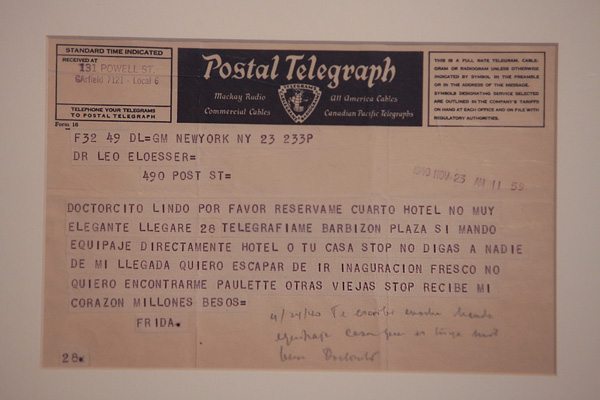 STANDARD TIME INDICATED
RECEIVED AT
131 POWELL ST.
GArfield 7121 - Local 6
TELEPHONE YOUR TELEGRAMS
TO POSTAL TELEGRAPH
Form 16
Postal Telegraph
Mackay Radio
All America Cables
Commercial Cables
Canadian Pacific Telegraphs
THIS IS A FULL RATE TELEGRAM, CABLE-
GRAM OR RADIOGRAM UNLESS OTHERWISE
INDICATED BY SYMBOL IN THE PREAMBLE
OR IN THE ADDRESS OF THE MESSAGE.
SYMBOLS DESIGNATING SERVICE SELECTED
ARE OUTLINED IN THE COMPANY'S TARIFFS
ON HAND AT EACH OFFICE AND ON FILE WITH
REGULATORY AUTHORITIES.
F32 49 DL=GM NEWYORK NY 23 233P
DR LEO ELOESSER=
490 POST ST=
1940 NOV 23 AM 11 55
DOCTORCITO LINDO POR FAVOR RESERVAME CUARTO HOTEL NO MUY
ELEGANTE LLEGARE 28 TELEGRAFIAME BARBIZON PLAZA SI MANDO
EQUIPAJE DIRECTAMENTE HOTEL O TU CASA STOP NO DIGAS A NADIE
DE MI LLEGADA QUIERO ESCAPAR DE IR INAGURACION FRESCO NO
QUIERO ENCONTRARME PAULETTE OTRAS VIEJAS STOP RECIBE MI
CORAZON MILLONES BESOS=
FRIDA.
4/24/40 Te
Doctorcito
28=